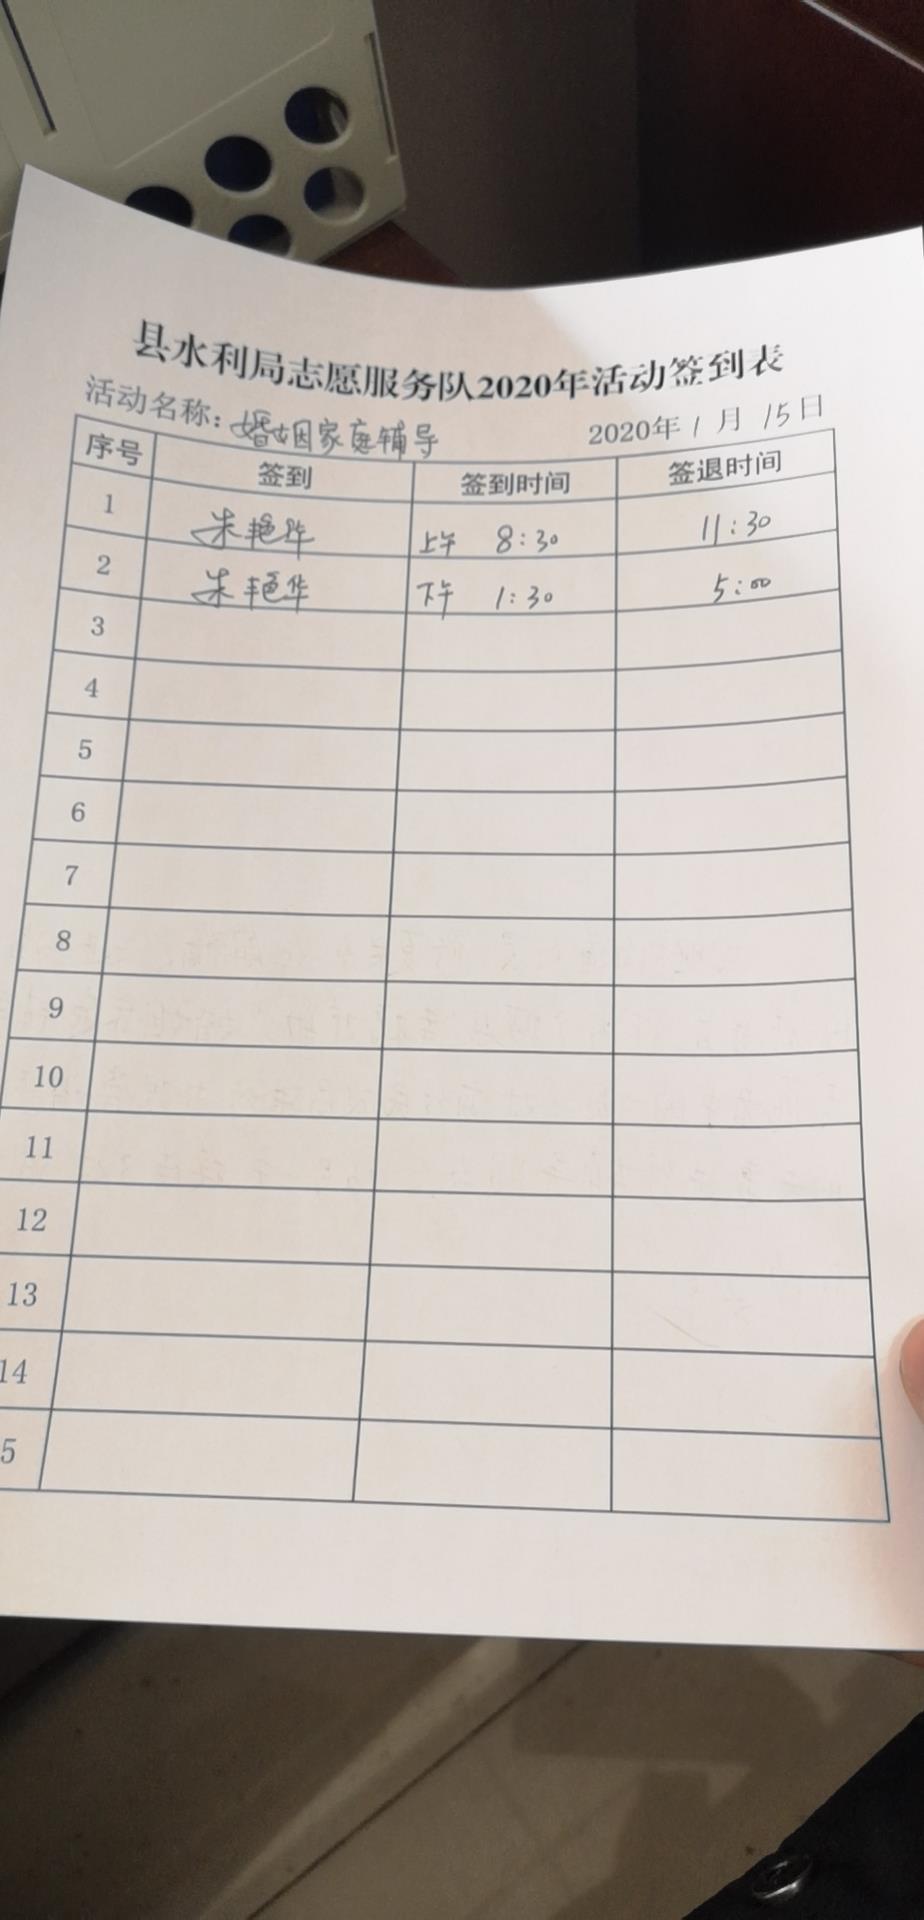 县水利局志愿服务队2020年活动签到表
活动名称：婚姻家庭辅导 2020年1月15日
序号 签到 签到时间 签退时间
1 朱艳华 上午 8:30 11:30
2 朱艳华 下午 1:30 5:00
3
4
5
6
7
8
9
10
11
12
13
14
5